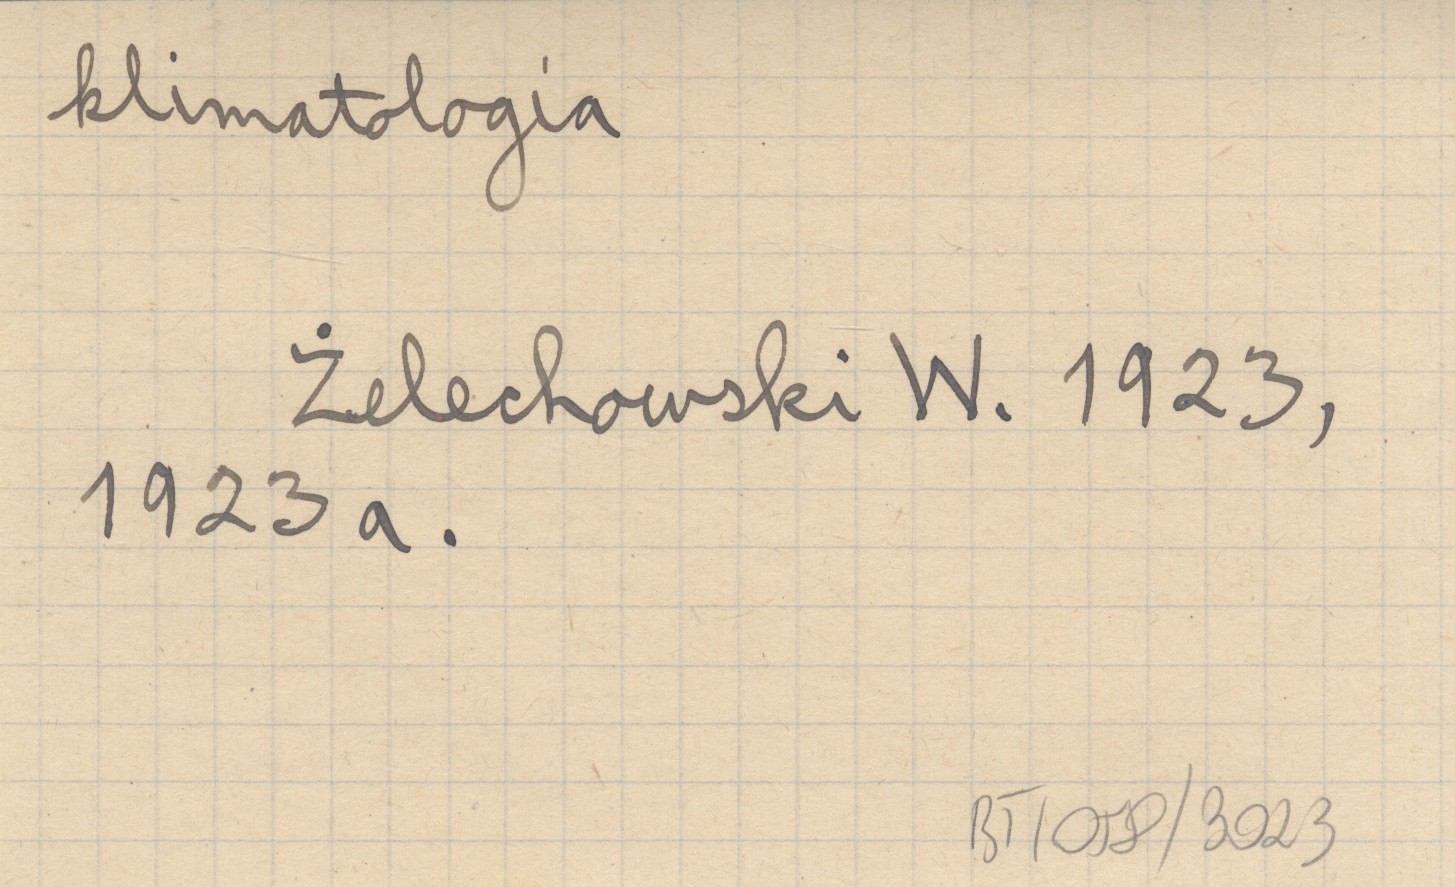 klimatologia
Żelechowski W. 1923,
1923 a.
BT/058/3023